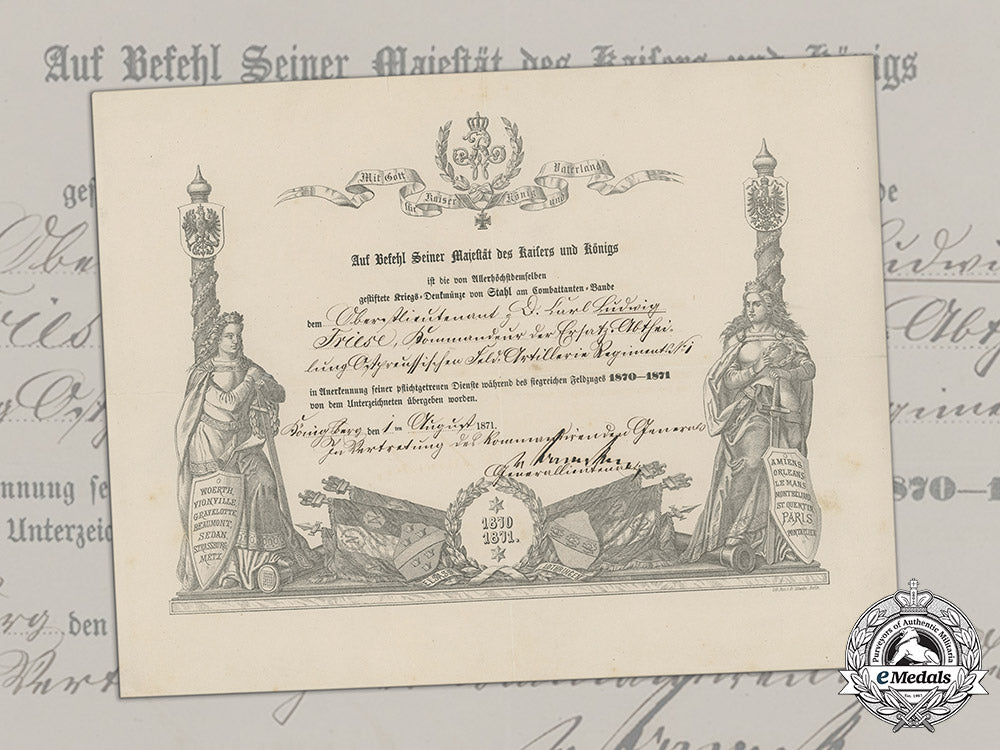 Auf Befehl Seiner Majestät des Kaisers und Königs
Mit Gott
für
Kaiser
König
und
Vaterland
Auf Befehl Seiner Majestät des Kaisers und Königs
ist die von Allerhöchstdemselben
gestiftete Kriegs-Denkmünze von Stahl am Combattanten-Bande
dem Oberstlieutenant, D. Carl Ludwig
Friese, Kommandeur der Ersatz-Abthei-
lung Ostpreussischen Feld-Artillerie Regiments No 1
in Anerkennung seiner pflichtgetreuen Dienste während des siegreichen Feldzuges 1870—1871
von dem Unterzeichneten übergeben worden.
Königsberg, den 1 ten August 1871.
In Vertretung des Kommandirenden Generals
Generallieutenant
WOERTH,
VIONVILLE,
GRAVELOTTE,
BEAUMONT,
SEDAN,
STRASSBURG,
METZ.
1870
1871.
AMIENS,
ORLEANS,
LE MANS,
MONTBELIARD
ST QUENTIN,
PARIS,
PONTARLIER
Purveyors of Authentic Militaria
eMedals
Est. 1967